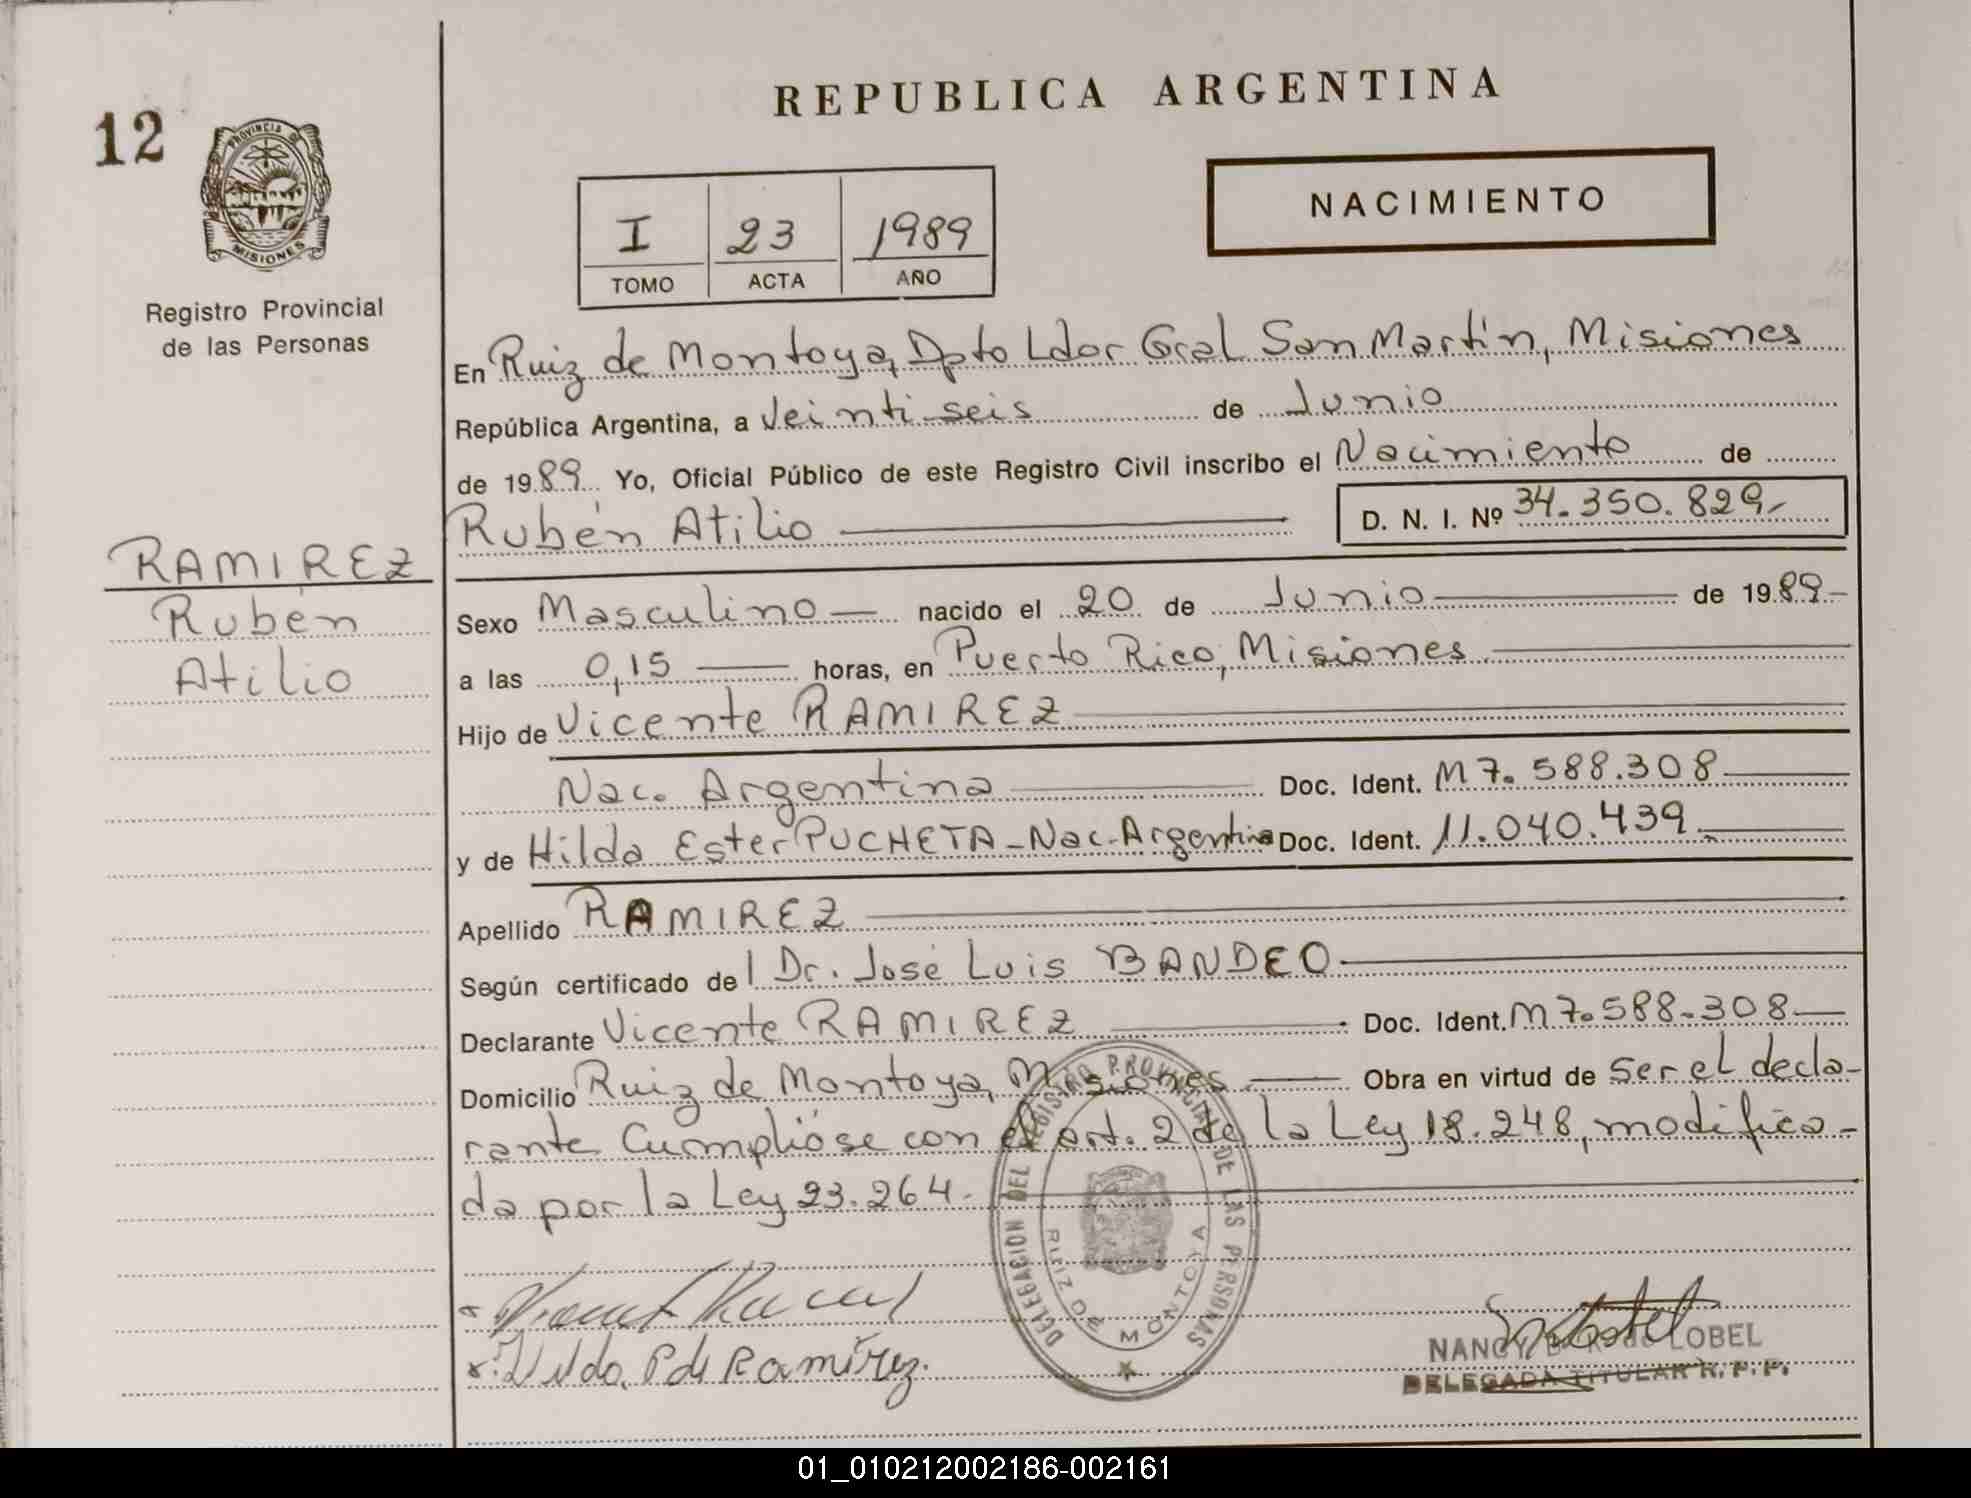 REPUBLICA ARGENTINA
12
PROVINCIA DE
MISIONES
Registro Provincial
de las Personas
I 23 1989
TOMO ACTA AÑO
NACIMIENTO
En Ruiz de Montoya, Dpto Ldor Gral San Martín, Misiones
República Argentina, a Veintiseis de Junio
de 1989 Yo, Oficial Público de este Registro Civil inscribo el Nacimiento de
Rubén Atilio D. N. I. Nº 34.350.829
RAMIREZ
Rubén
Atilio
Sexo Masculino nacido el 20 de Junio de 1989
a las 0,15 horas, en Puerto Rico, Misiones
Hijo de Vicente RAMIREZ
Nac. Argentina Doc. Ident. M 7.588.308
y de Hilda Ester PUCHETA - Nac. Argentina Doc. Ident. 11.040.439
Apellido RAMIREZ
Según certificado del Dr. José Luis BANDEO
Declarante Vicente RAMIREZ Doc. Ident. M 7.588.308
Domicilio Ruiz de Montoya, Misiones Obra en virtud de ser el decla-
rante Cumplióse con el art. 2 de la Ley 18.248, modifica-
da por la Ley 23.264.
DELEGACION DEL REGISTRO PROVINCIAL DE LAS PERSONAS
RUIZ DE MONTOYA
Hilda P de Ramírez.
NANCY de LOBEL
DELEGADA TITULAR R. P. P.
01_010212002186-002161